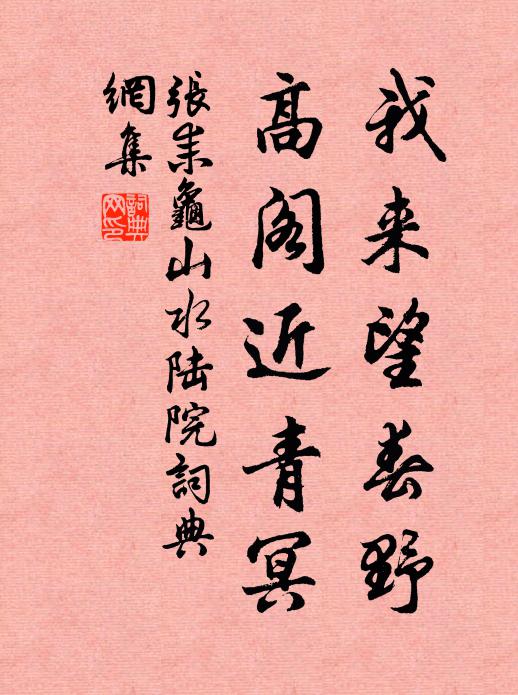 我来望春野
高阁近青冥
張耒龜山水陆院詞典
網集
詞典网印